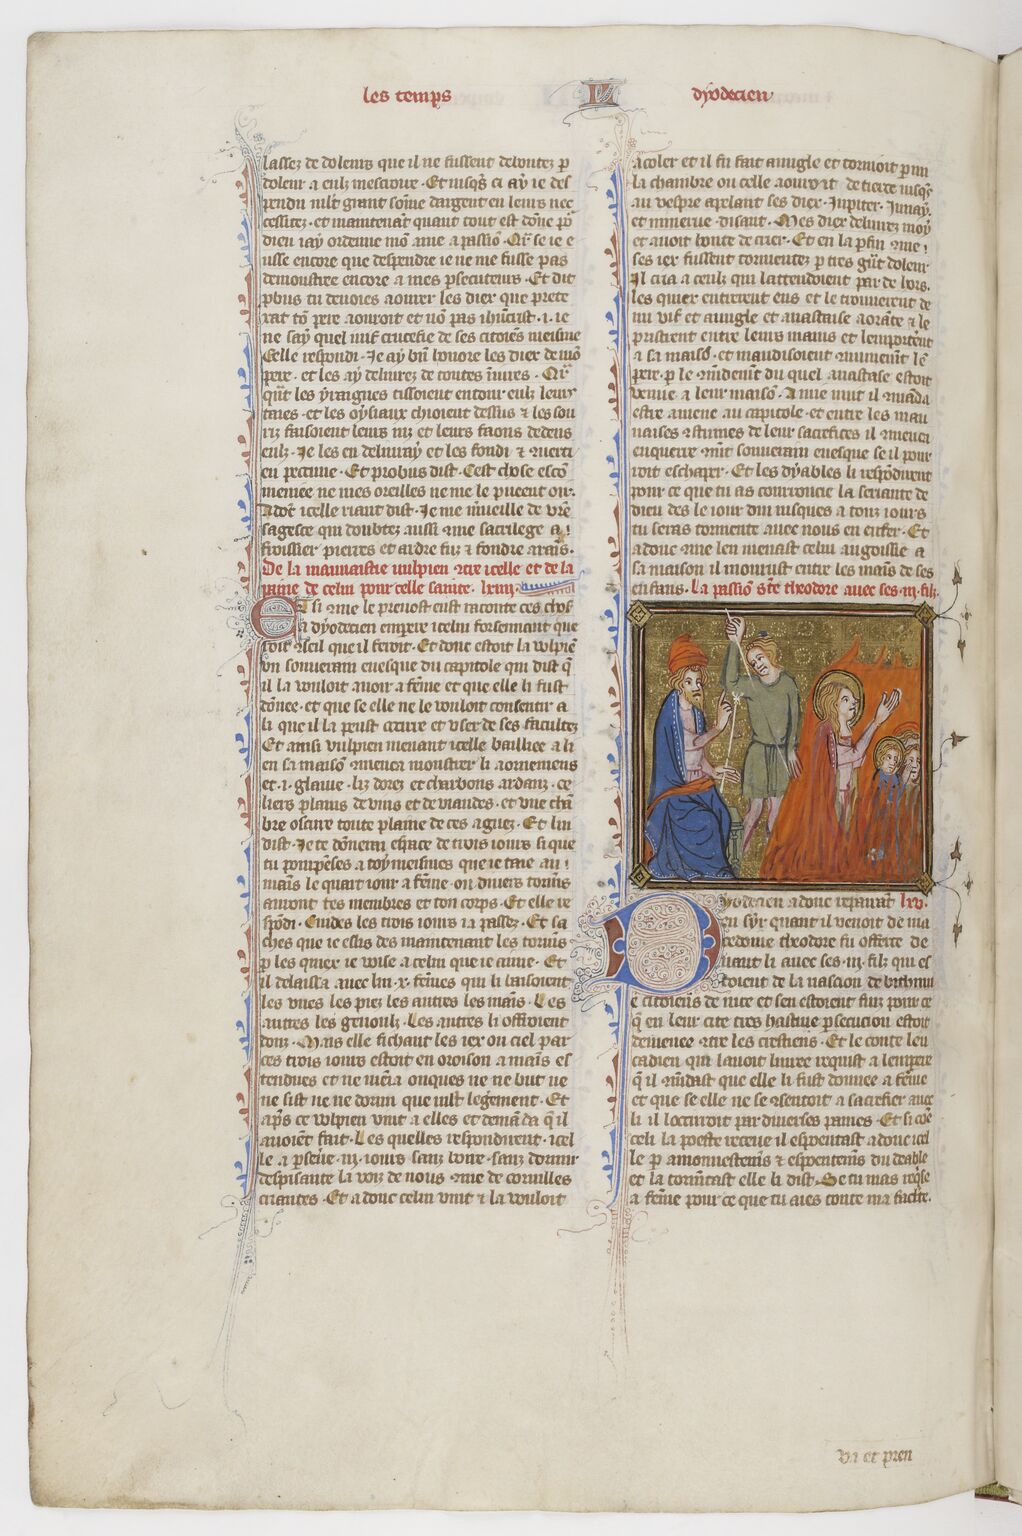 les temps
dyodecien
lassez de dolenrs que il ne fussent deboutez p
doleur a eulz mescroire · Et iusqs ci ay ie des
pendu mlt grant some dargent en leurs nec
cessitez · et maintenāt quant tout est dōne po
dieu iay ordenne mō ame a passiō · Qr se ie e
usse encore que despendre ie ne me fusse pas
demoustree encore a mes psecuteurs · Et dit
pbus tu devoies aourer les diex que prete
rat tō pere aouroit et nō pas ihucrist · i · ie
ne say quel
crucefie de ses citoiēs meisme
Celle respondi · Je ay bn honore les diex de mō
pere · et les ay delivrez de toutes iniures · Qr
qūt les yraignes tissoient entour eulz leurs
taies · et les oysiaux chioient dessus & les sou
riz faisoient leurs niz et leurs faons dedens
eulz · Je les en delivray et les fondi &
en peccune · Et probus dist · Cest chose escō
meniee ne mes oreilles ne me le pueent oir ·
Adōt icelle riant dist · Je me mueille de vre
sagesce qui doubtez aussi
sacrilege a ·
froissier pierres et ardre fuz & fondre arais ·
De la mauuaistie vulpien
icelle et de la
paine de celui pour celle sainte · lxiiii ·
Et si
le prevost eust raconte ces chos
a dyodecien empere icelui forsennant que
roit
que il feroit · Et donc estoit la volpien
un souuerain euesque du capitole qui dist q
il la vouloit auoir a feme et que elle li fust
dōnee · et que se elle ne le vouloit consentir a
li que il la peust
et user de ses facultez
Et ainsi vulpien menant icelle bailliee a li
en sa maisō
monstrer li aornemens
et · i · glaiue · liz dorez et charbons ardanz · ce
liers plains de vins et de viandes · et vne chā
bre oscure toute plaine de ces aguez · Et lui
dist · Je te donrai espace de trois iours si que
tu pompenses a toy meismes que ie taie au ·
mais le quart iour a feme · ou divers tormēs
auront tes membres et ton corps · Et elle re
spōdi · Cuides les trois iours ia passez · Et sa
ches que ie eslis des maintenant les tormēs
p les quiex ie voise a celui que ie aime · Et
il delaissa avec lui · x · femes qui li baisoient
les vnes les piez les autres les mais · Les
autres les genoulz · Les autres li offroient
dons · Mais elle fichant les iex ou ciel par
ces trois iours estoit en oroison a mais es
tendues et ne menia onques ne ne but ne
ne sist ne ne dormi que mlt legement · Et
aps ce volpien vint a elles et demāda q il
auoiēt fait · Les quelles respondirent · icel
le a pseue · iii · iours sanz boire · sanz dormir
despisante la voiz de nous
de cornilles
criantes · Et a donc celui vint & la vouloit
acoler et il fu fait auugle et tornoit p mi
la chambre ou celle aouroit de tierce iusqs
au vespre apelant ses diex · Jupiter · Juna
et minerue disant · Mes diex delivrez moy
et auoit honte de crier · Et en la pfin
ses iex fussent tormentez p tres gūt doleur
Il cria a ceulz qui lattendoient par de hors ·
les quiex entrerent ens et le trouuerent de
mi vif et auugle et anastaise aorāte & le
pristrent entre leurs mains et lemporterent
a sa maisō · et maudisoient
le
pere · p le
du quel anastase estoit
venue a leur maisō ·
nuit il māda
estre amene au capitole · et entre les mau
uaises
de leur sacrefices il
enquerre
souuerain euesque se il pour
roit eschaper · Et les dyables li respōdirent
pour ce que tu as courroucie la seriante de
dieu des le iour dui iusques a touz iours
tu seras tormente auec nous en enfer · Et
adonc
len menast celui angoissie a
sa maison il mourust entre les mais de ses
enfans · La passiō ste theodore auec ses · iii · filz ·
Dyodecien adonc repairāt lxv ·
en syr quant il venoit de ma
cedonie theodore fu offerte de
uant li auec ses · iii · filz qui es
toient de la nascion de bithinni
e citoiens de nice et sen estoient fuiz pour ce
q en leur cite tres hastiue psecucion estoit
demenee
les crestiens · Et le conte leu
cadien qui lauoit liuree requist a lempere
q il
que elle li fust donnee a feme
et que se elle ne se
a sacrefier auec
li il locirroit par diuerses paines · Et si
celi la poeste receue il espoentast adonc icel
le p amonnestemens & espoentemēs du deable
et la tormētast elle li dist · Se tu mas
a feme pour ce que tu aies toute ma faculte ·
va et pren